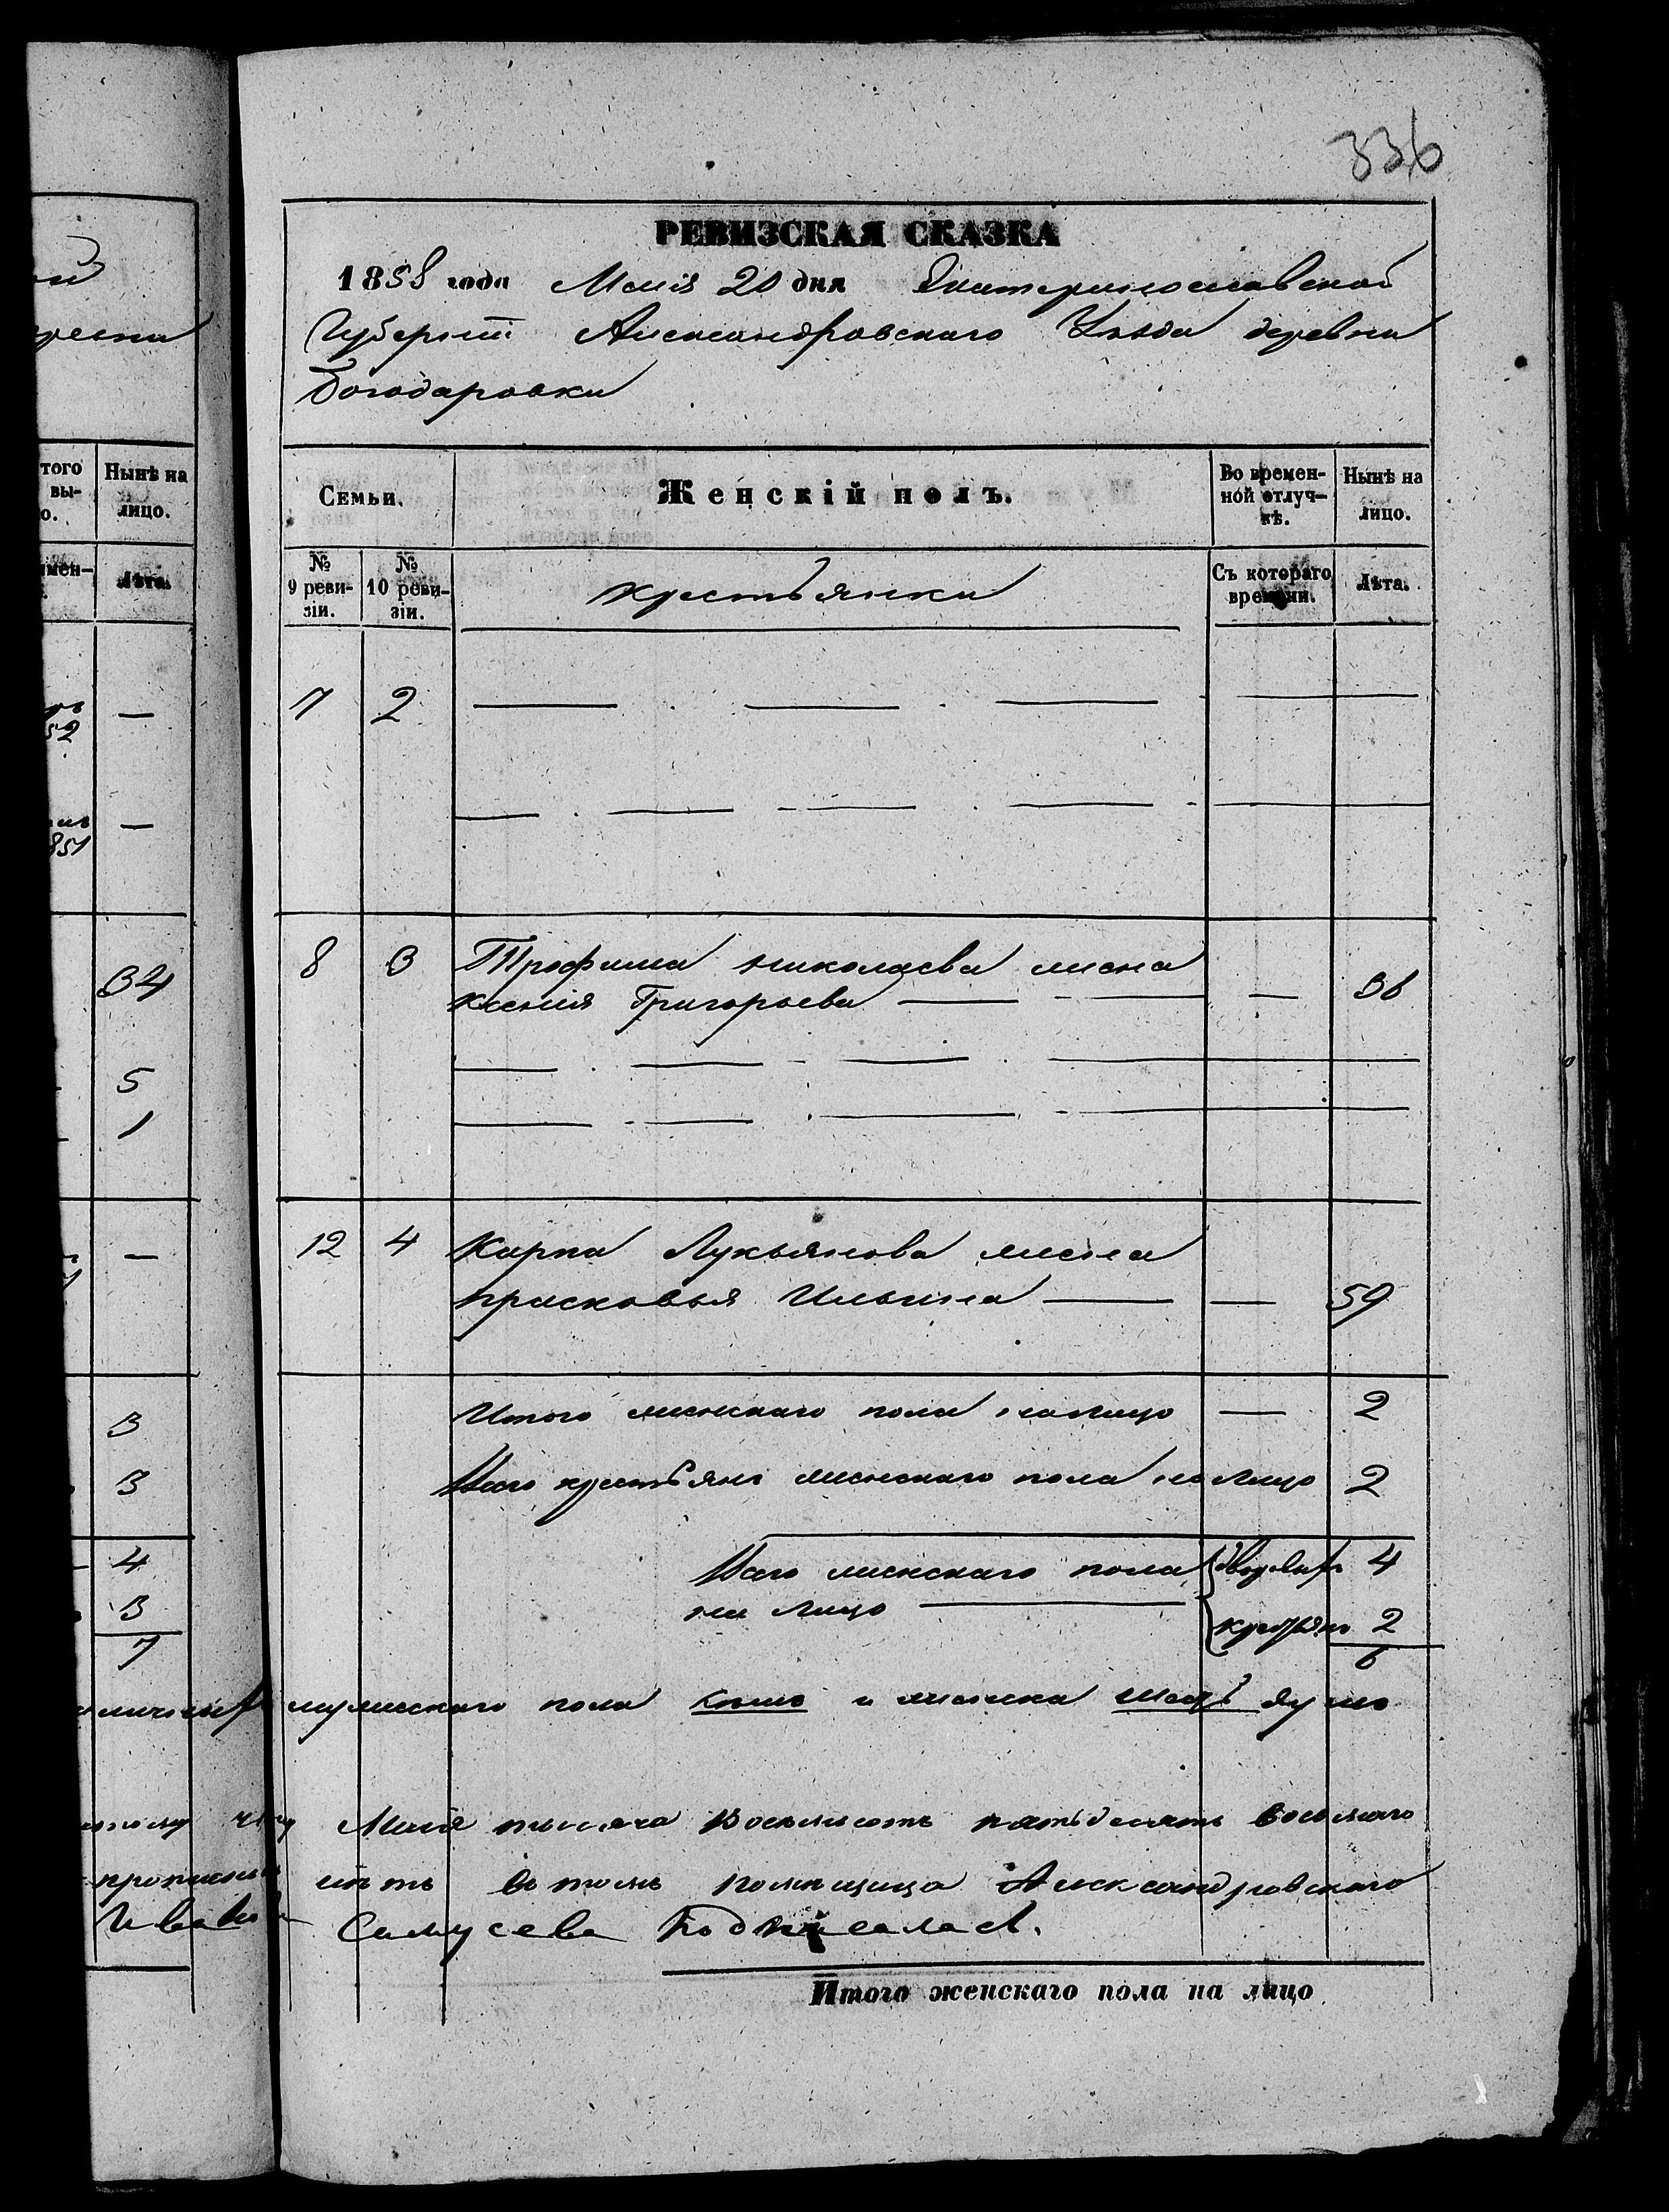 336
РЕВИЗСКАЯ СКАЗКА
1858 года Маія 20 дня Екатеринославской
Губерніи Александровскаго Уѣзда деревни
Богодаровки
того
вы-
о.
Нынѣ на
лицо.
Лѣта.
Семьи.
Женскій полъ.
Во времен-
ной отлуч-
кѣ.
Нынѣ на
лицо.
№
9 реви-
зіи.
№
10 реви-
зіи.
крестьянки
Съ котораго
времени.
Лѣта.
52
—
851
—
7 2
34
5
1
8 3 Трофима Николаева жена
Ксенія Григорьева — — 36
—
12 4 Карпа Лукьянова жена
Прасковья Ильина — — 59
3
3
Итого женскаго пола налицо — 2
Всего крестьянъ женскаго пола на лицо 2
4
3
7
Всего женскаго пола дворовыхъ 4
на лицо — крестьянъ 2
6
мужескаго пола семь и женска шесть душъ
Маія тысяча восемьсотъ пятьдесятъ восьмаго
лѣтъ въ томъ помѣщица Александровскаго
Ивано
Самусева подписалась.
Итого женскаго пола на лицо